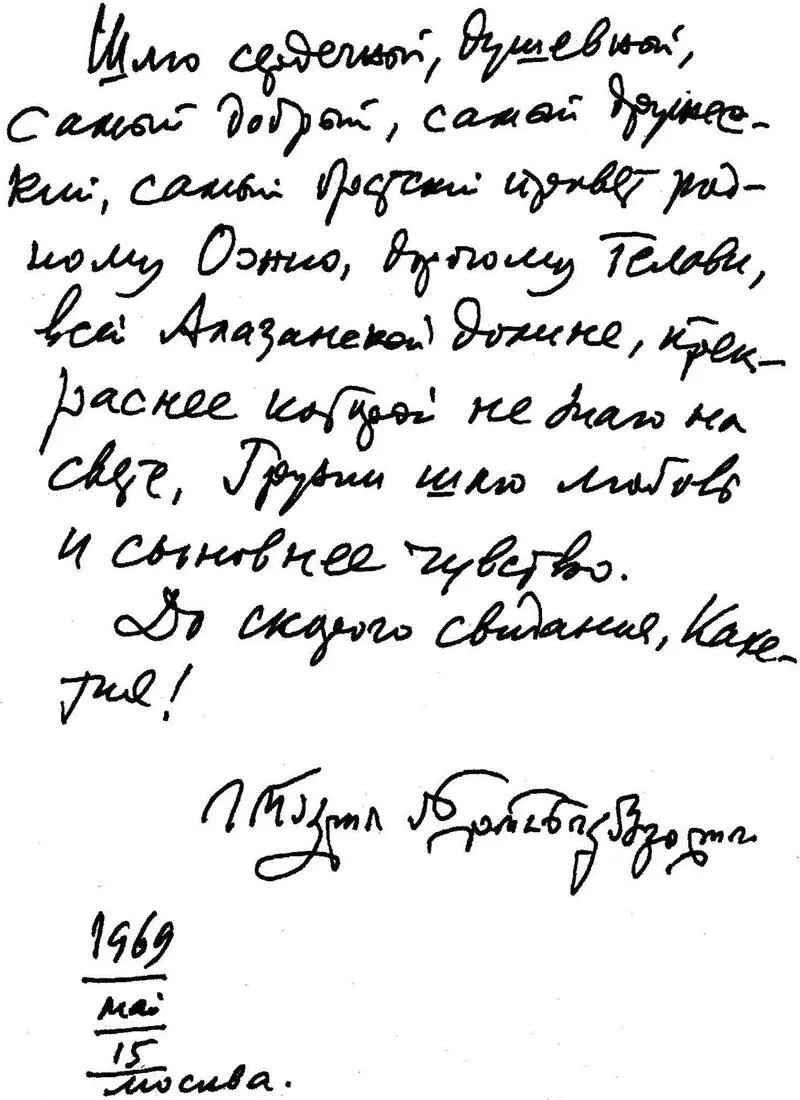 Шлю сердечный, душевный,
самый добрый, самый дружес-
кий, самый братский привет род-
ному Ожио, дорогому Телави,
всей Алазанской долине, прек-
раснее которой не знаю на
свете, Грузии шлю любовь
и сыновнее чувство.
До скорого свидания, Кахе-
тия!
1969
май
15
Москва.